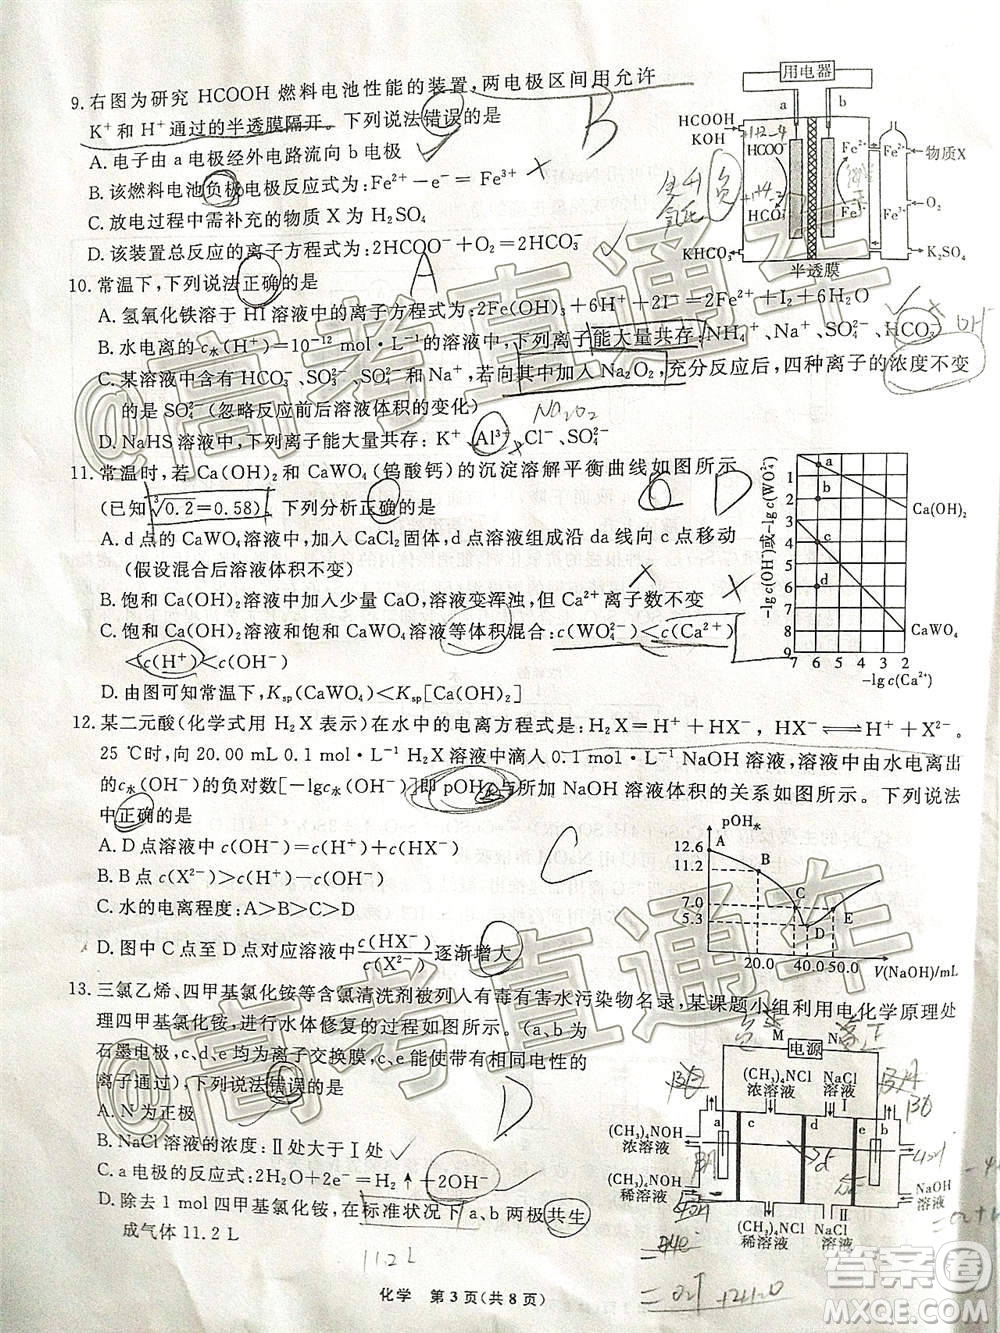 9. 右图为研究 HCOOH 燃料电池性能的装置,两电极区间用允许
K⁺和 H⁺通过的半透膜隔开。下列说法错误的是
B
A. 电子由 a 电极经外电路流向 b 电极
B. 该燃料电池负极电极反应式为:Fe²⁺－e⁻＝Fe³⁺
C. 放电过程中需补充的物质 X 为 H₂SO₄
D. 该装置总反应的离子方程式为:2HCOO⁻＋O₂＝2HCO₃⁻
用电器
a
b
HCOOH
KOH
HCOO⁻
HCO₃⁻
KHCO₃
Fe²⁺
Fe³⁺
Fe²⁺
Fe³⁺
物质X
O₂
K₂SO₄
半透膜
负
10. 常温下,下列说法正确的是
A
A. 氢氧化铁溶于 HI 溶液中的离子方程式为:2Fe(OH)₃＋6H⁺＋2I⁻＝2Fe²⁺＋I₂＋6H₂O
B. 水电离的 c水(H⁺)＝10⁻¹² mol·L⁻¹的溶液中,下列离子能大量共存:NH₄⁺、Na⁺、SO₄²⁻、HCO₃⁻
C. 某溶液中含有 HCO₃⁻、SO₃²⁻、CO₃²⁻和 Na⁺,若向其中加入 Na₂O₂,充分反应后,四种离子的浓度不变
的是 SO₃²⁻(忽略反应前后溶液体积的变化)
Na₂O₂
D. NaHS 溶液中,下列离子能大量共存:K⁺、Al³⁺、Cl⁻、SO₄²⁻
11. 常温时,若 Ca(OH)₂ 和 CaWO₄(钨酸钙)的沉淀溶解平衡曲线如图所示
(已知∛0.2＝0.58)。下列分析正确的是
D
A. d 点的 CaWO₄ 溶液中,加入 CaCl₂ 固体,d 点溶液组成沿 da 线向 c 点移动
(假设混合后溶液体积不变)
B. 饱和 Ca(OH)₂ 溶液中加入少量 CaO,溶液变浑浊,但 Ca²⁺离子数不变
C. 饱和 Ca(OH)₂ 溶液和饱和 CaWO₄ 溶液等体积混合:c(WO₄²⁻)<c(Ca²⁺)
<c(H⁺)<c(OH⁻)
D. 由图可知常温下,Ksp(CaWO₄)<Ksp[Ca(OH)₂]
-lgc(OH⁻)或-lgc(WO₄²⁻)
1
2
3
4
5
6
7
8
9
a
b
c
d
Ca(OH)₂
CaWO₄
7 6 5 4 3 2
-lgc(Ca²⁺)
12. 某二元酸(化学式用 H₂X 表示)在水中的电离方程式是:H₂X＝H⁺＋HX⁻,HX⁻⇌H⁺＋X²⁻。
25 ℃时,向 20.00 mL 0.1 mol·L⁻¹ H₂X 溶液中滴人 0.1 mol·L⁻¹ NaOH 溶液,溶液中由水电离出
的 c水(OH⁻)的负对数[－lgc水(OH⁻)]即 pOH水与所加 NaOH 溶液体积的关系如图所示。下列说法
中正确的是
C
A. D 点溶液中:c(H⁺)＋c(HX⁻)＝c(OH⁻)
B. B 点:c(X²⁻)＋c(H⁺)＝c(OH⁻)
C. 水的电离程度:A>B>C>D
D. 图中 C 点至 D 点对应溶液中c(HX⁻)/c(X²⁻)逐渐增大
pOH水
12.6
11.2
7.0
5.3
A
B
C
D
E
20.0
40.0
50.0
V(NaOH)/mL
13. 三氯乙烯、四甲基氯化铵等含氯清洗剂被列人有毒有害水污染物名录,某课题小组利用电化学原理处
理四甲基氯化铵,进行水体修复的过程如图所示。(a、b 为
石墨电极,c、d、e 均为离子交换膜,c、e 能使带有相同电性的
离子通过),下列说法错误的是
D
A. N 为正极
B. NaCl 溶液的浓度:Ⅱ处大于Ⅰ处
C. a 电极的反应式:2H₂O＋2e⁻＝H₂↑＋2OH⁻
D. 除去 1 mol 四甲基氯化铵,在标准状况下 a、b 两极共生
成气体 11.2 L
11.2L
M
N
电源
(CH₃)₄NCl
浓溶液
NaCl
溶液
Ⅰ
(CH₃)₄NOH
浓溶液
(CH₃)₄NOH
稀溶液
a
c
d
e
b
(CH₃)₄NCl
稀溶液
Ⅱ
NaCl
溶液
NaOH
溶液
化学 第 3 页(共 8 页)
@高考直通车
@高考直通车
答案圈
MXQE.COM